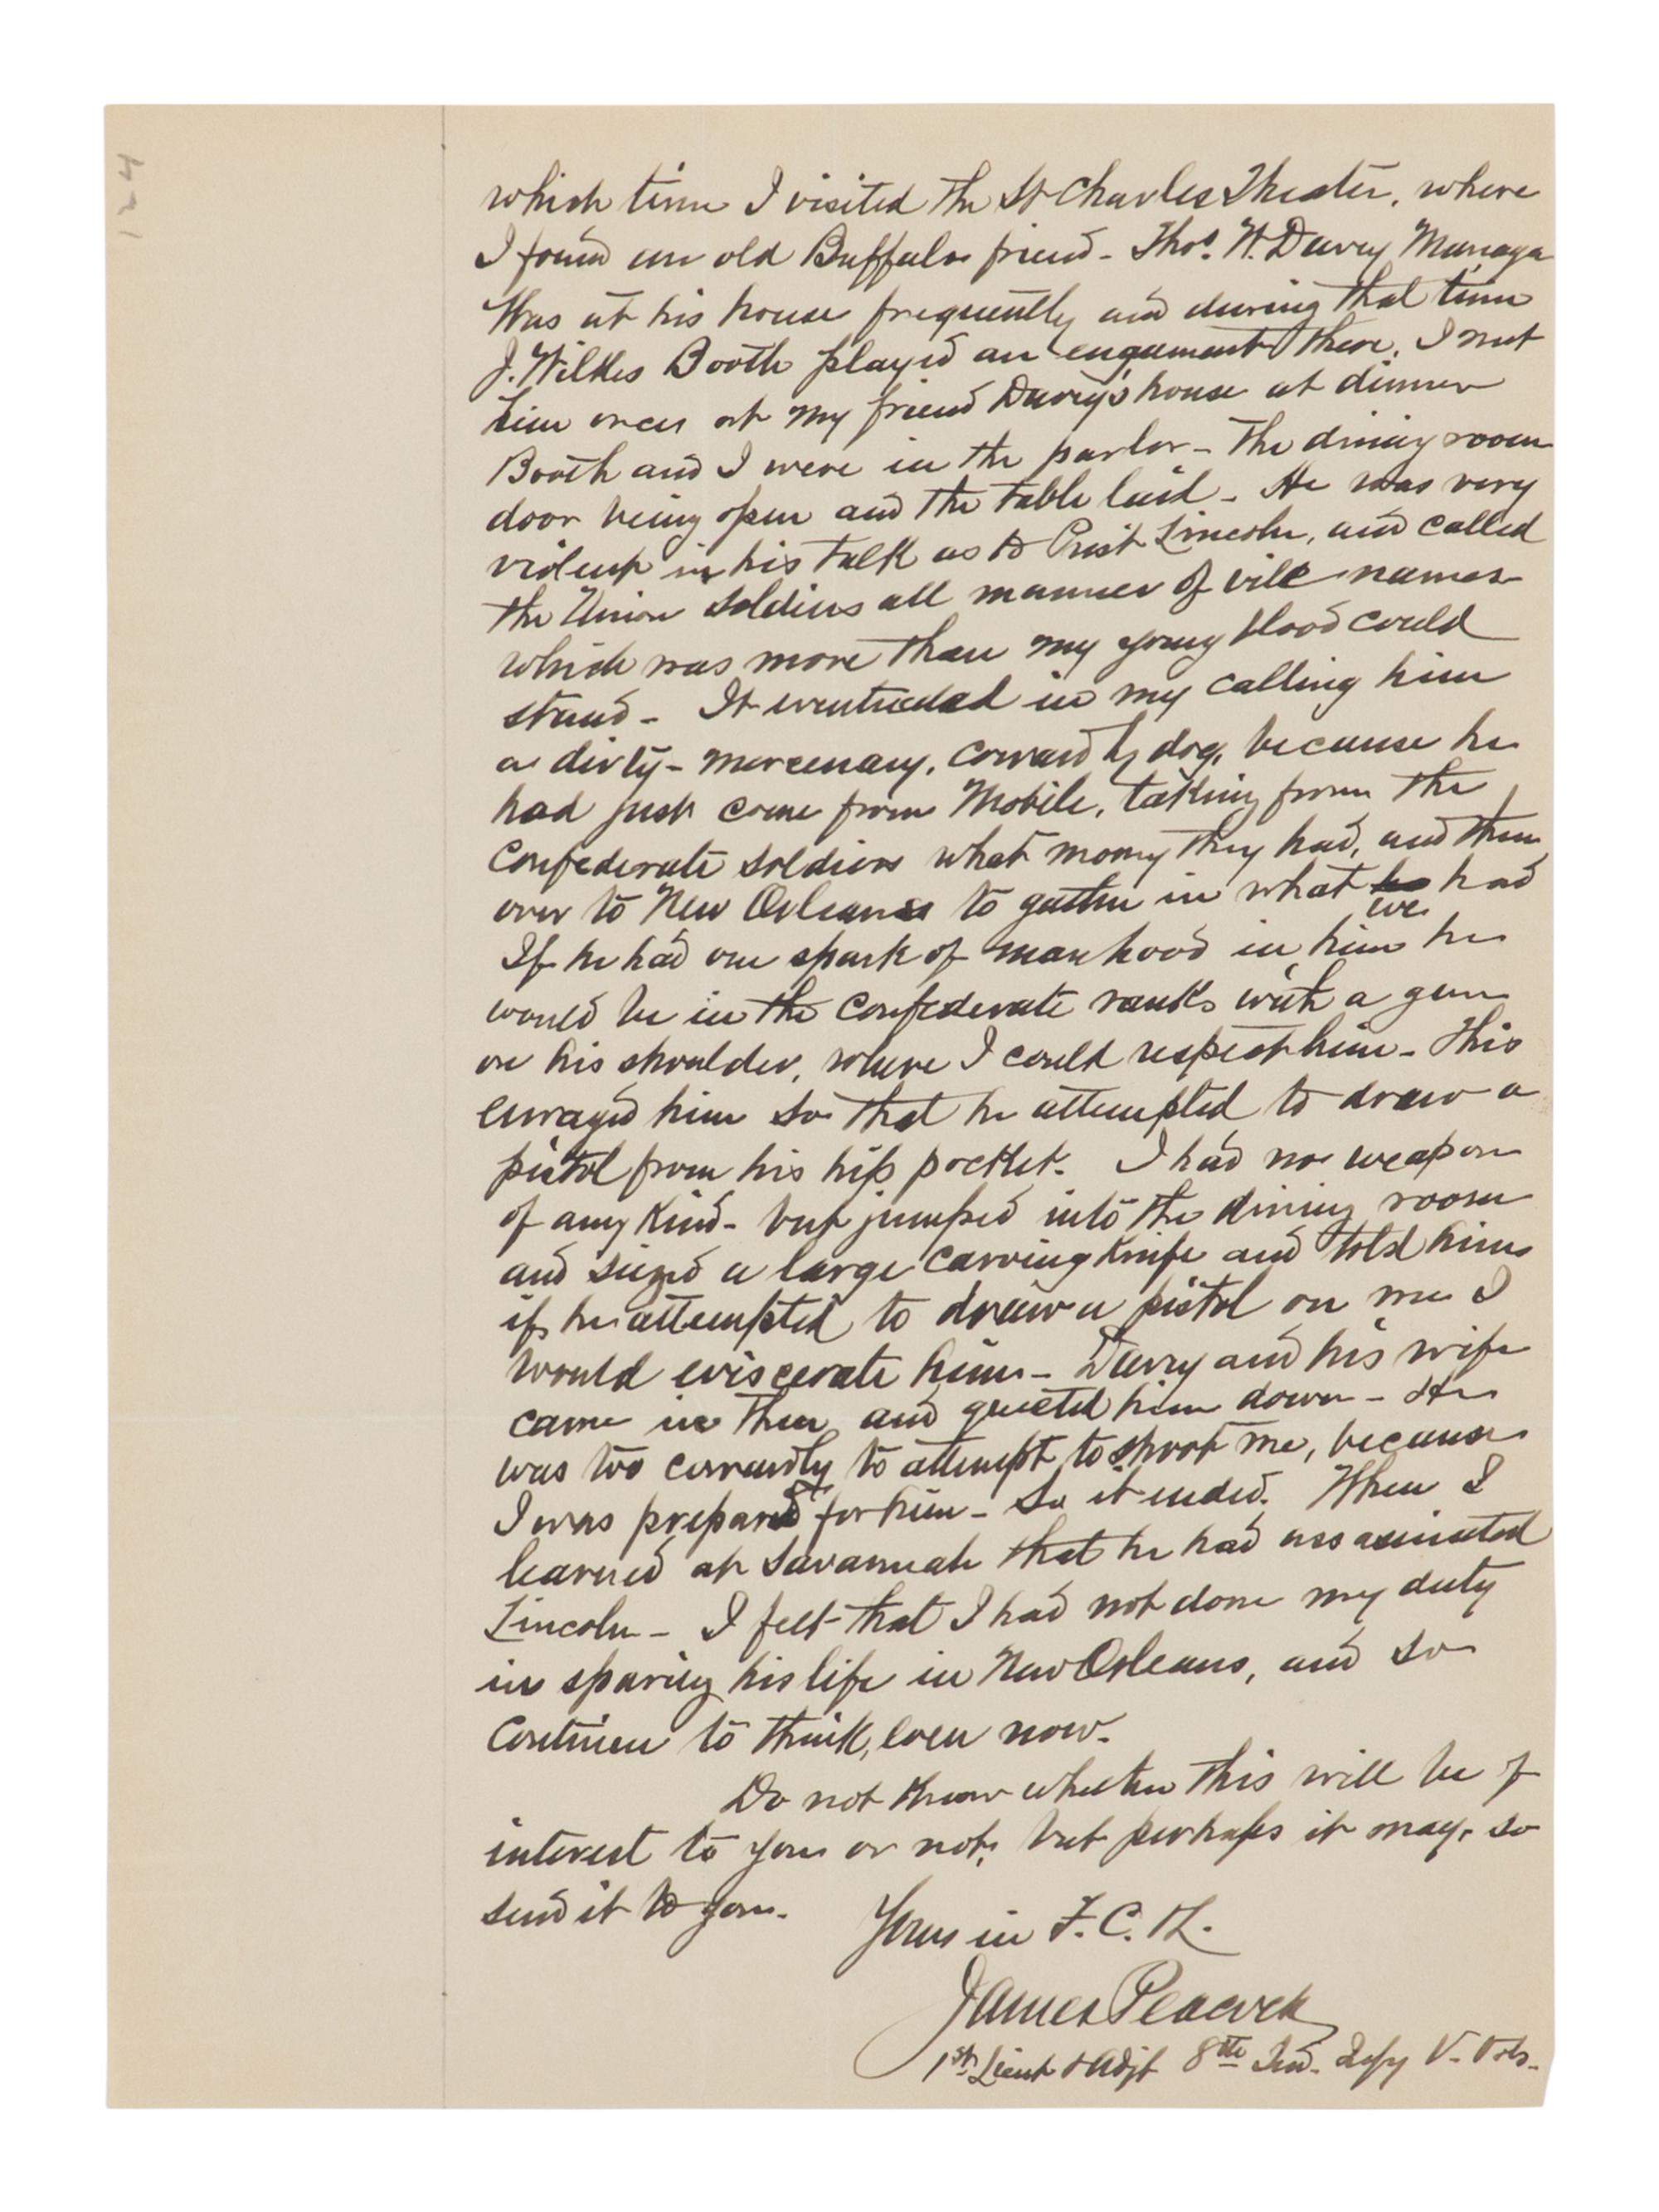 which time I visited the St Charles Theater, where
I found an old Buffalo friend - Thos. W. Davey Manager
Was at his house frequently and during that time
J. Wilkes Booth played an engament there. I met
him once at my friend Davey's house at dinner
Booth and I were in the parlor - the dining room
door being open and the table laid - He was very
violent in his talk as to Prest Lincoln, and called
the Union soldiers all manner of vile names
which was more than my young blood could
stand - It eventuated in my calling him
a dirty - mercenary, cowardly dog, because he
had just come from Mobile, taking from the
Confederate soldiers what money they had, and then
over to New Orleans to gather in what he had
we
If he had one spark of manhood in him he
would be in the Confederate ranks with a gun
on his shoulder, where I could respect him - This
enraged him so that he attempted to draw a
pistol from his hip pocket. I had no weapon
of any kind - but jumped into the dining room
and siezed a large carving knife and told him
if he attempted to draw a pistol on me I
would eviscerate him - Davey and his wife
came in then and quieted him down - He
was too cowardly to attempt to shoot me, because
I was prepared for him - So it ended. When I
learned at Savannah that he had assasinated
Lincoln - I felt that I had not done my duty
in sparing his life in New Orleans, and so
continue to think, even now.
Do not know whether this will be of
interest to you or not, but perhaps it may, so
send it to you.
Yours in F. C. & L.
James Peacock
1st Lieut & Adjt 8th Ind. Infy V. Vols.